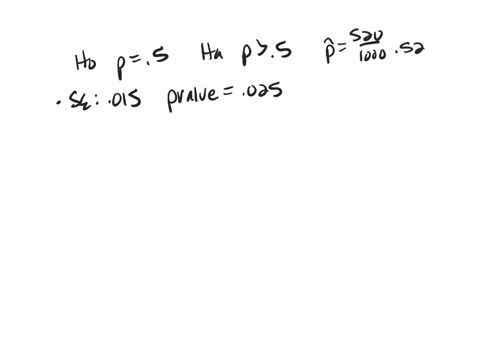 Ho p=.5 Ha p>.5 p̂=520/1000 .52
pvalue = .025